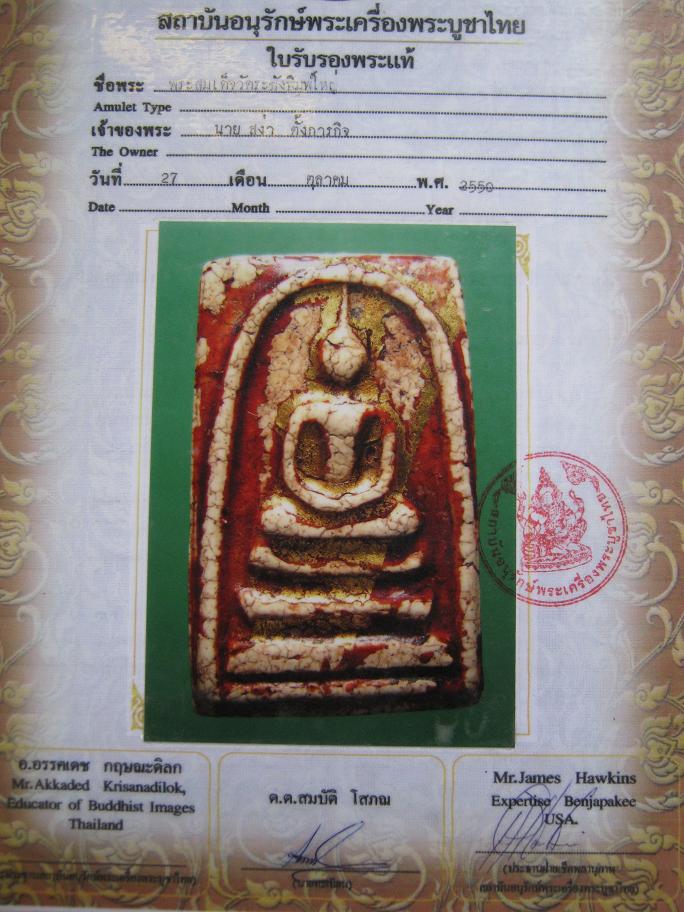 สถาบันอนุรักษ์พระเครื่องพระบูชาไทย
ใบรับรองพระแท้
ชื่อพระ พระสมเด็จวัดระฆังพิมพ์ใหญ่
Amulet Type
เจ้าของพระ นาย สง่า ตั้งภารกิจ
The Owner
วันที่ 27 เดือน ตุลาคม พ.ศ. 2550
Date Month Year
สถาบันอนุรักษ์พระเครื่องพระบูชาไทย
อ.อรรคเดช กฤษณะดิลก
Mr.Akkaded Krisanadilok,
Educator of Buddhist Images
Thailand
ด.ต.สมบัติ โสภณ
(นายทะเบียน)
Mr.James Hawkins
Expertise Benjapakee
USA.
สถาบันอนุรักษ์พระเครื่องพระบูชาไทย)